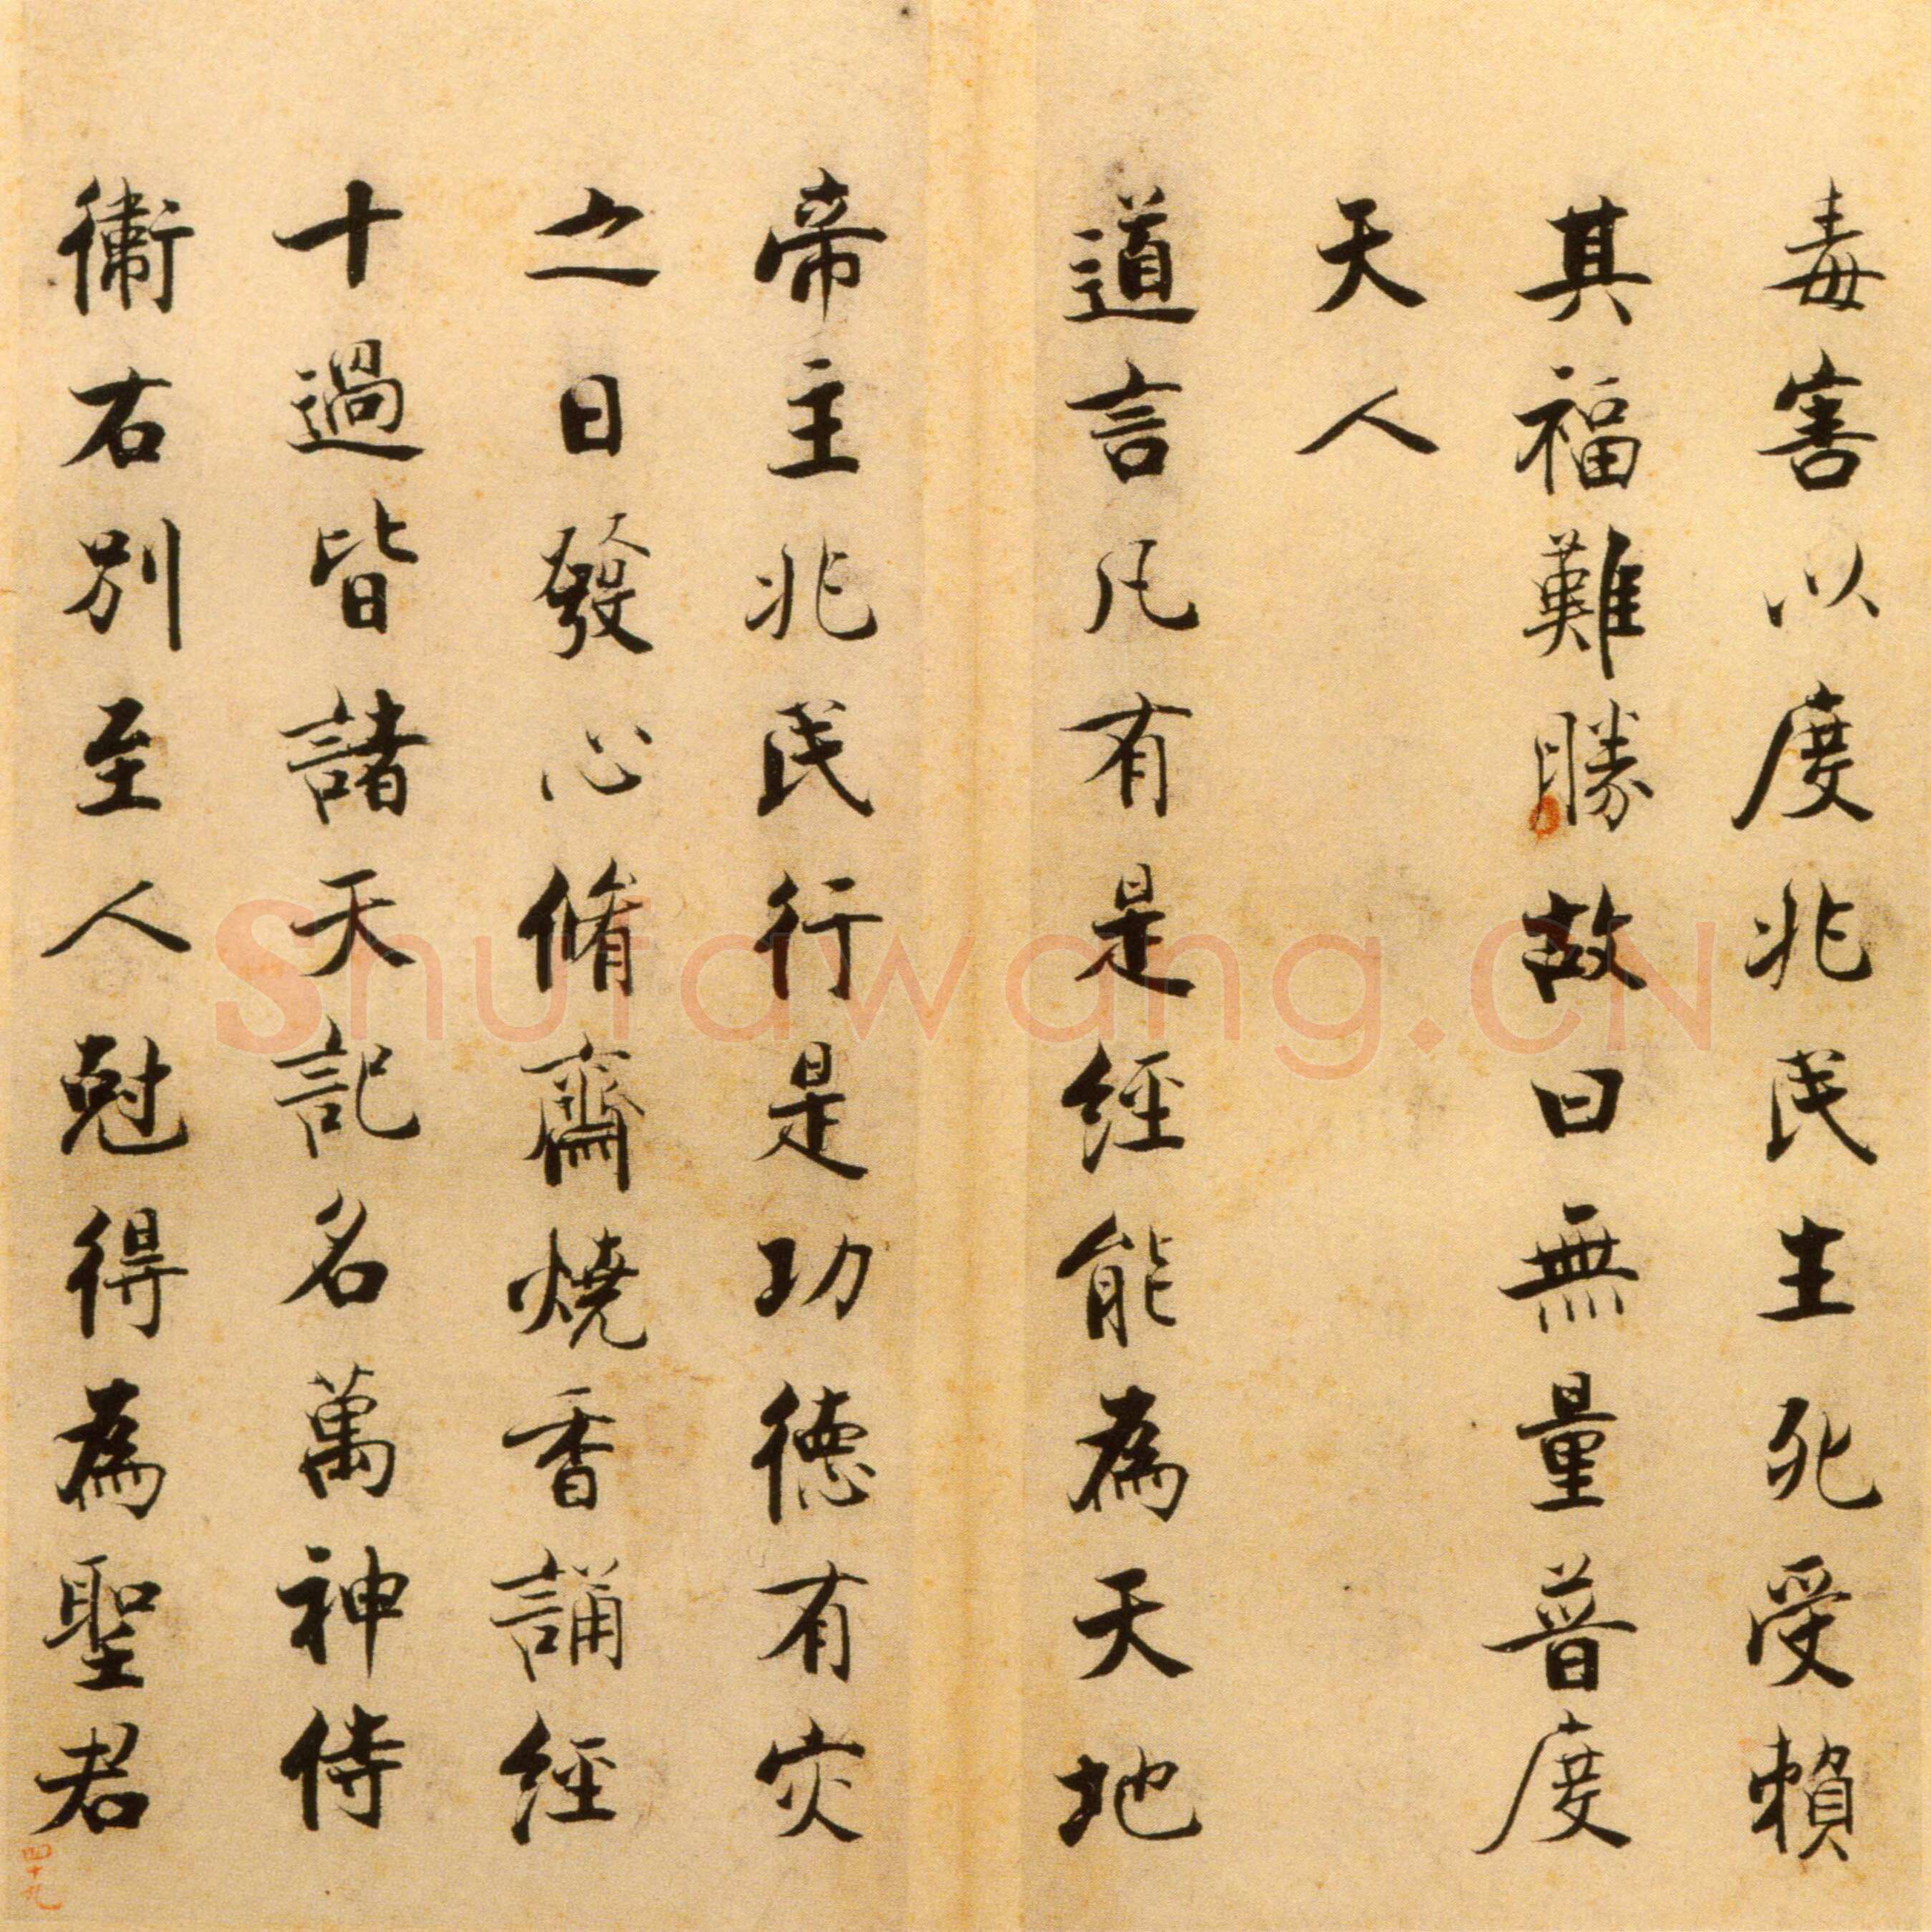 毒害以度兆民生死受賴
其福難勝故曰無量普度
天人
道言凡有是經能為天地
帝主兆民行是功德有灾
之日發心脩齋燒香誦經
十過皆諸天記名萬神侍
衛右別至人尅得為聖君
四十九
Shufawang.CN